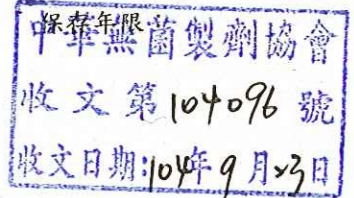 保存年限
中華無菌製劑協會
收文第104096號
收文日期:104年9月23日